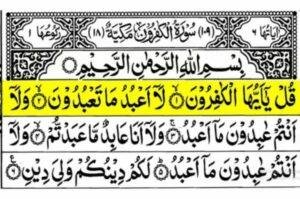 اٰیَاتُهَا ٦ (١٠٩) سُوْرَةُ الْكٰفِرُوْنَ مَكِّیَّةٌ (١٨) رُكُوْعُهَا ١
بِسْمِ اللّٰهِ الرَّحْمٰنِ الرَّحِیْمِ
قُلْ یٰۤاَیُّهَا الْكٰفِرُوْنَ ١ لَاۤ اَعْبُدُ مَا تَعْبُدُوْنَ ٢ وَلَاۤ
اَنْتُمْ عٰبِدُوْنَ مَاۤ اَعْبُدُ ٣ وَلَاۤ اَنَا عَابِدٌ مَّا عَبَدْتُّمْ ٤ وَلَاۤ
اَنْتُمْ عٰبِدُوْنَ مَاۤ اَعْبُدُ ٥ لَكُمْ دِیْنُكُمْ وَلِیَ دِیْنِ ٦